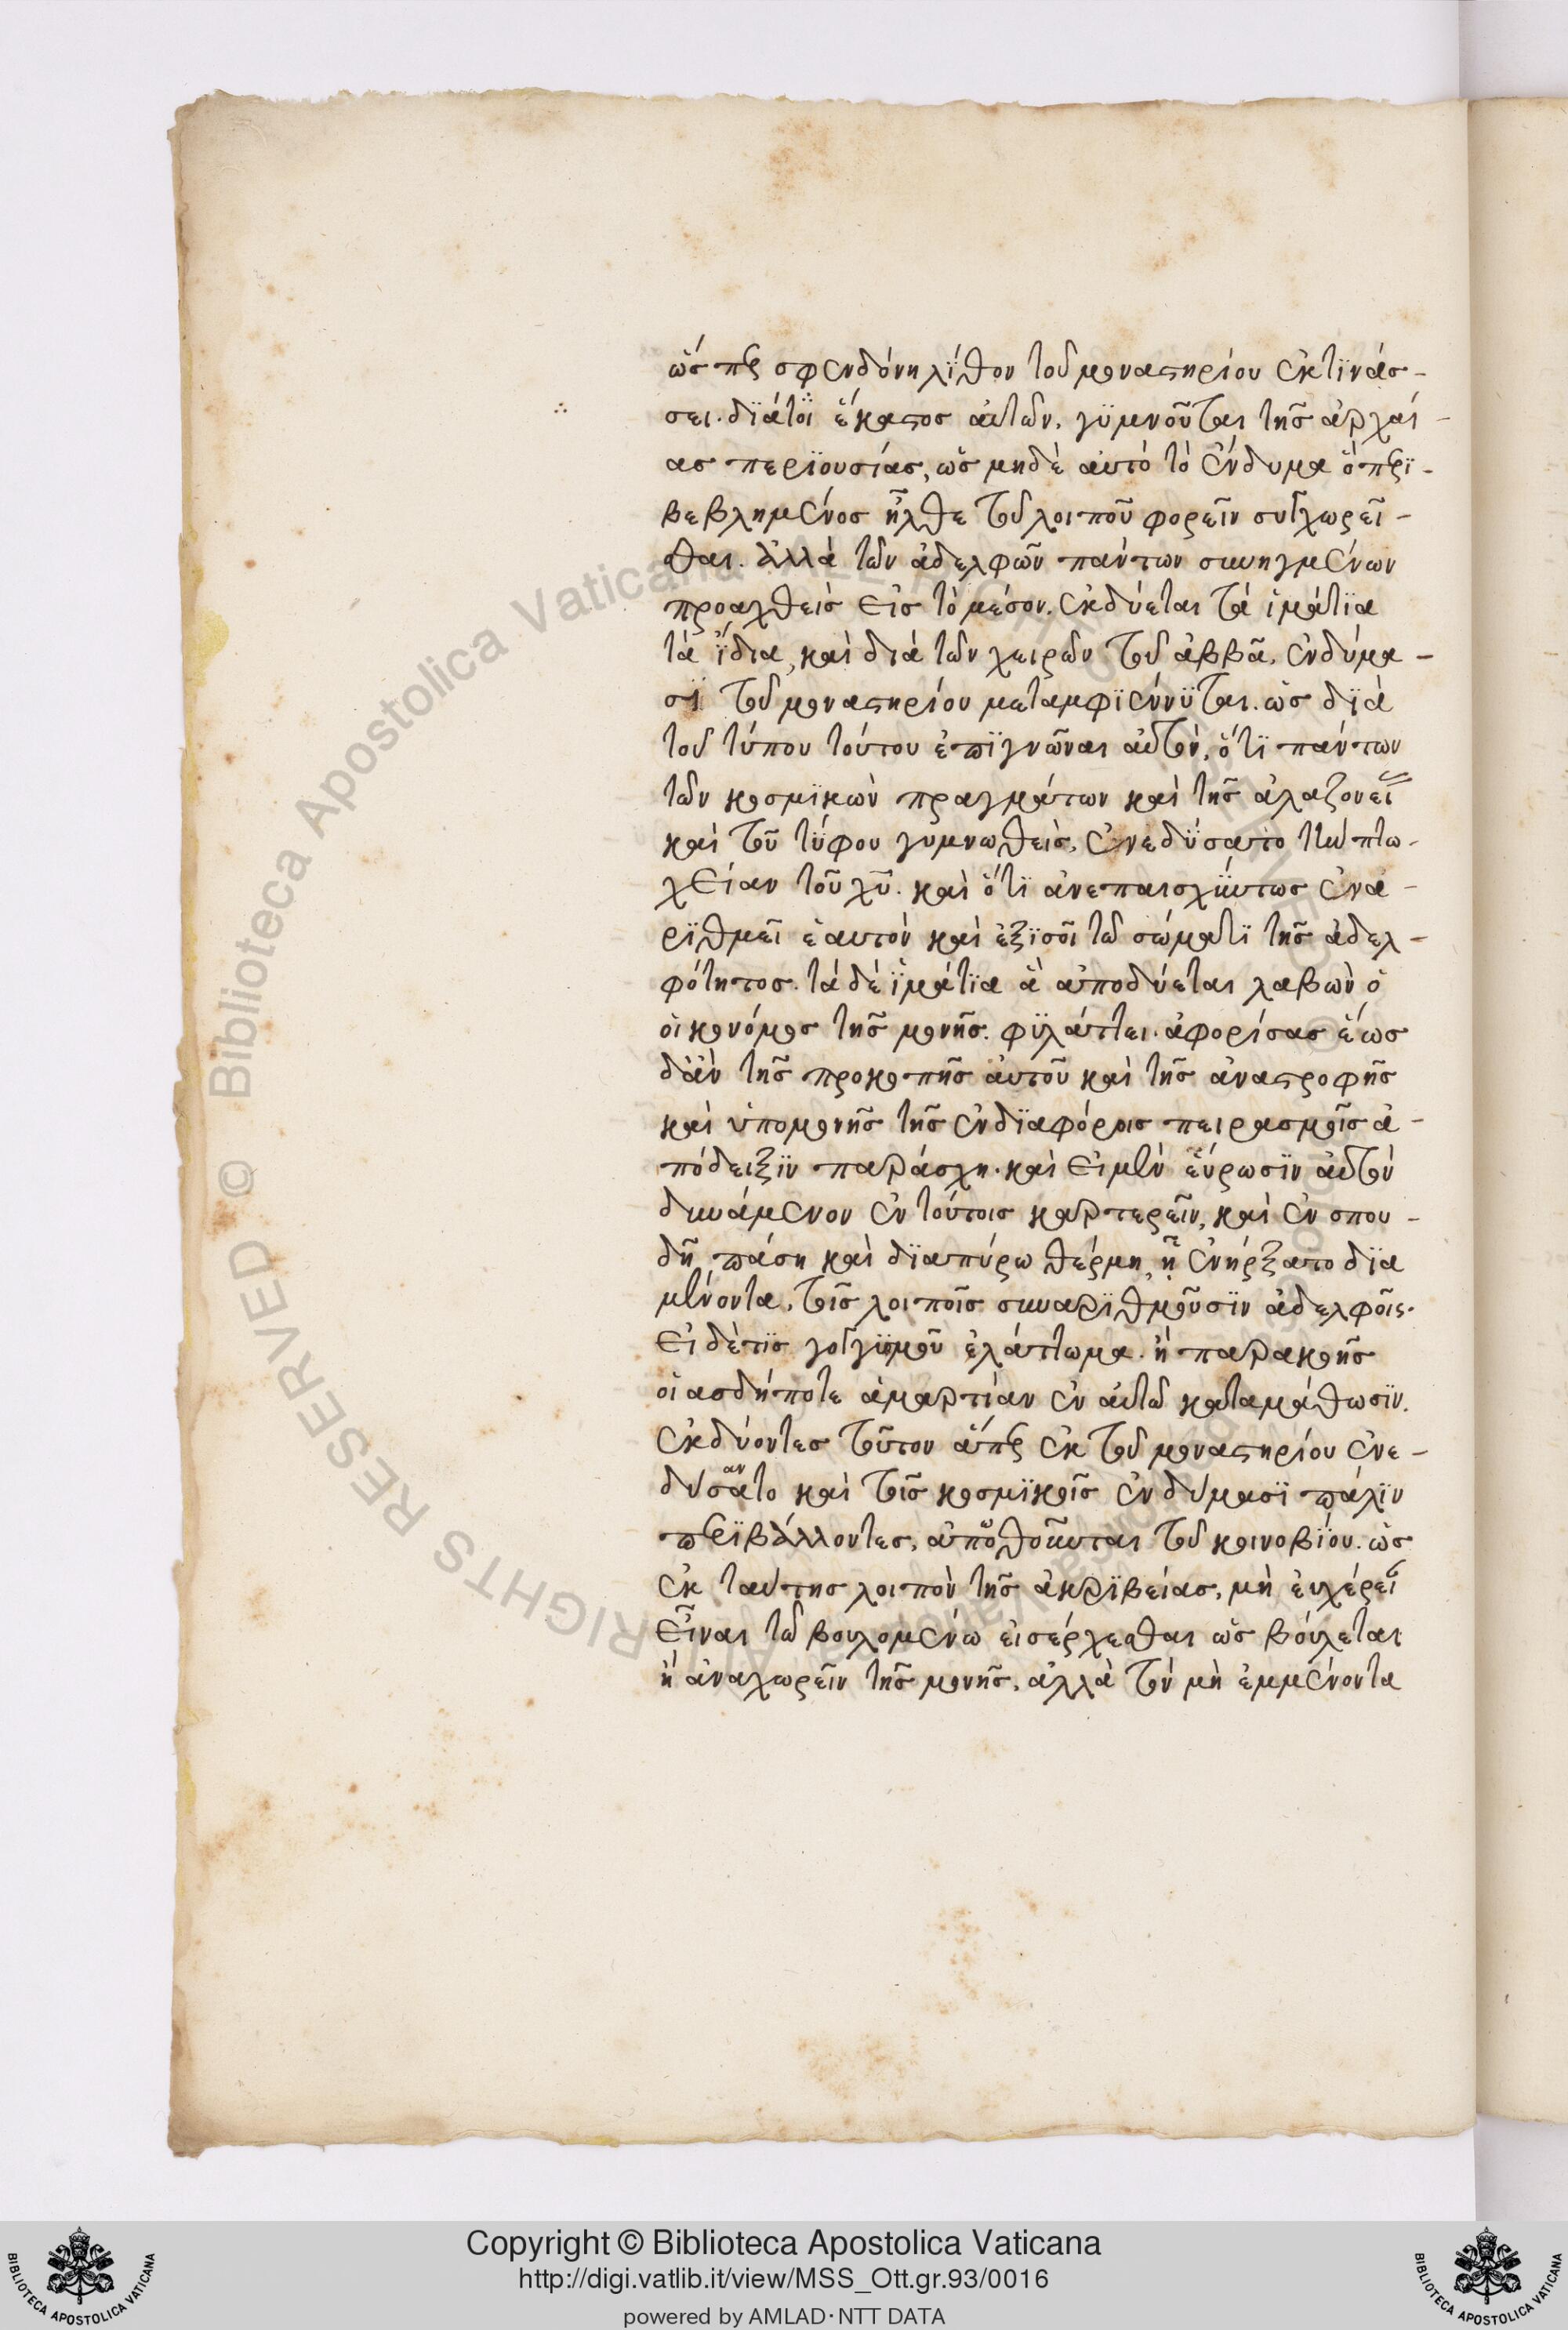 ὥσπερ σφενδόνη λίθον τοῦ μοναστηρίου ἐκτινάσ-
σει. διάτοι ἕκαστος αὐτῶν, γυμνοῦται τῆς ἀρχαί-
ας περϊουσίας, ὡς μηδὲ αὐτὸ τὸ ἔνδυμα ὃ περϊ-
βεβλημένος ἦλθε τοῦ λοιποῦ φορεῖν συγχωρεῖ-
σθαι. ἀλλὰ τῶν ἀδελφῶν πάντων συνηγμένων
προαχθεὶς εἰς τὸ μέσον, ἐκδύεται τὰ ἱμάτϊα
τὰ ἴδια, καὶ διὰ τῶν χειρῶν τοῦ ἀββᾶ, ἐνδύμα-
σϊ τοῦ μοναστηρίου μεταμφϊέννϋται. ὡς δϊὰ
τοῦ τύπου τούτου ἐπϊγνῶναι αὐτὸν, ὅτϊ πάντων
τῶν κοσμϊκῶν πραγμάτων καὶ τῆς ἀλαζονεί
καὶ τοῦ τύφου γυμνωθεὶς, ἐνεδύσατο τὴν πτω-
χείαν τοῦ χῦ. καὶ ὅτϊ ἀνεπαισχύντως ἐνα-
ρϊθμεῖ ἑαυτὸν καὶ ἐξϊσοῖ τῶ σώματϊ τῆς ἀδελ-
φότητος. τὰ δὲ ἱμάτϊα ἃ ἀποδύεται λαβὼν ὁ
οἰκονόμος τῆς μονῆς. φϋλάττει. ἀφορίσας ἕως
δἂν τῆς προκοπῆς αὐτοῦ καὶ τῆς ἀναστροφῆς
καὶ ὑπομονῆς τῆς ἐν δϊαφόροις πειρασμοῖς ἀ-
πόδειξϊν παράσχη. καὶ εἰ μὲν εὕρωσϊν αὐτὸν
δυνάμενον ἐν τούτοις καρτερεῖν, καὶ ἐν σπου-
δῆ πάση καὶ δϊαπύρω θέρμη, ἧ ἐνήρξατο δϊα
μένοντα, τοῖς λοιποῖς συναρϊθμοῦσϊν ἀδελφοῖς.
εἰ δὲ τϊς γογγϋσμοῦ ἐλάττωμα. ἢ παρακοῆς
οἱασδήποτε ἁμαρτίαν ἐν αὐτῶ καταμάθωσϊν.
ἐκδύοντες τοῦτον ἅπερ ἐκ τοῦ μοναστηρίου ἐνε-
δύσατο καὶ τοῖς κοσμϊκοῖς ἐνδύμασϊ πάλϊν
περϊβάλλοντες, ἀποθοῦνται τοῦ κοινοβίου. ὡς
ἐκ ταύτης λοιπὸν τῆς ἀκρϊβείας, μὴ εὐχέρεῖ
εἶναι τῶ βουλομένω εἰσέρχεσθαι ὡς βούλεται
ἢ ἀναχωρεῖν τῆς μονῆς, ἀλλὰ τὸν μὴ ἐμμένοντα
Copyright © Biblioteca Apostolica Vaticana
http://digi.vatlib.it/view/MSS_Ott.gr.93/0016
powered by AMLAD·NTT DATA